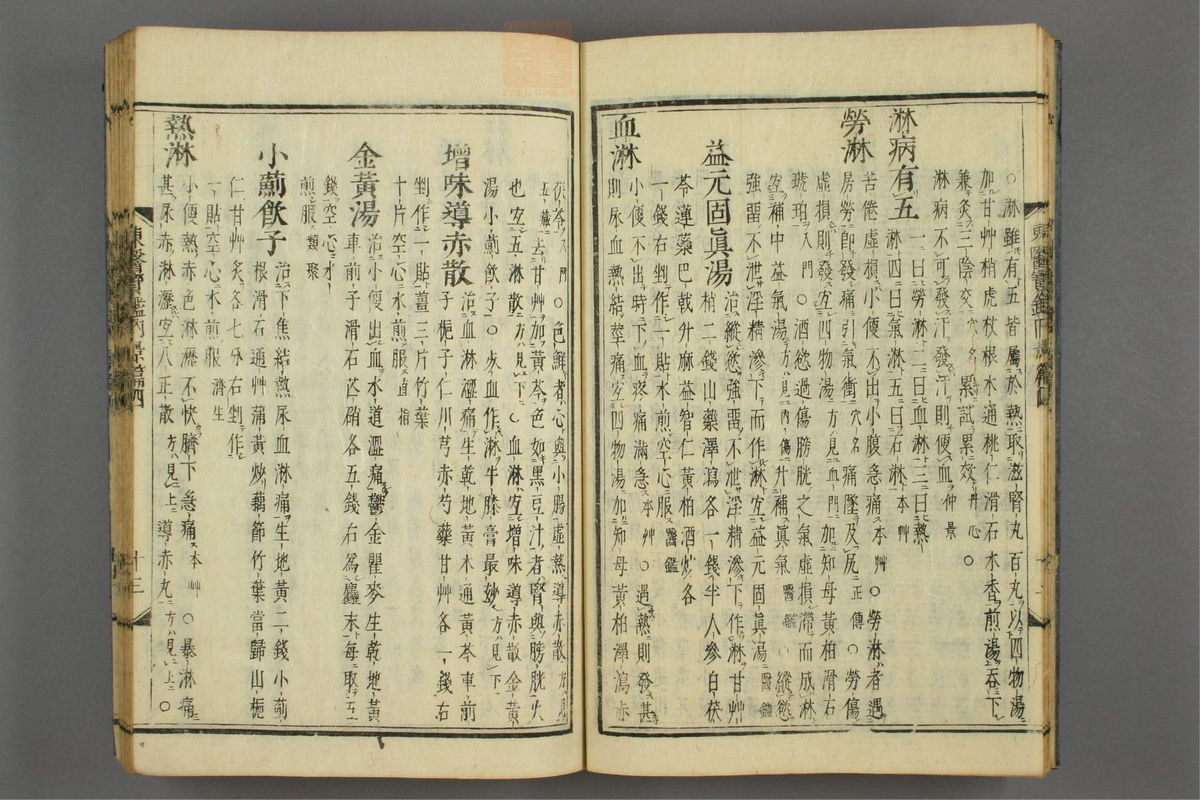 ○淋雖有五皆屬於熱取滋腎丸百丸以四物湯
加甘艸梢虎杖根木通桃仁滑石木香煎湯吞下
兼灸三陰交穴名累試累效丹心○
淋病不可發汗發汗則便血仲景
淋病有五一曰勞淋二曰血淋三曰熱
淋四曰氣淋五曰石淋本艸
勞淋苦倦虛損小便不出小腹急痛本艸○勞淋者遇
房勞卽發痛引氣衝穴名痛墜及尻正傳○勞傷
虛損則發宜四物湯方見血門加知母黃柏滑石
琥珀入門○酒慾過傷膀胱之氣虛損滯而成淋
宜補中益氣湯方見內傷升補眞氣醫鑑○縱慾
強畱不泄淫精滲下而作淋宜益元固眞湯醫鑑
益元固眞湯治縱慾強畱不泄淫精滲下作淋甘艸
梢二錢山藥澤瀉各一錢半人參白茯
苓蓮蘂巴戟升麻益智仁黃柏酒炒各
一錢右剉作一貼水煎空心服醫鑑
血淋小便不出時下血疼痛滿急本艸○遇熱則發甚
則尿血熱結莖痛宜四物湯加知母黃柏澤瀉赤
茯苓入門○色鮮者心與小腸虛熱導赤散方見
五藏去甘艸加黃芩色如黑豆汁者腎與膀胱火
也宜五淋散方見下○血淋宜增味導赤散金黃
湯小薊飮子○死血作淋牛膝膏最妙方見下
增味導赤散治血淋澁痛生乾地黃木通黃芩車前
子梔子仁川芎赤芍藥甘艸各一錢右
剉作一貼薑三片竹葉
十片空心水煎服直指
金黃湯治小便出血水道澁痛鬱金瞿麥生乾地黃
車前子滑石芒硝各五錢右爲麤末每取五
錢空心水
煎服類聚
小薊飮子治下焦結熱尿血淋痛生地黃二錢小薊
根滑石通艸蒲黃炒藕節竹葉當歸山梔
仁甘艸炙各七分右剉作
一貼空心水煎服濟生
熱淋小便熱赤色淋瀝不快臍下急痛本艸○暴淋痛
甚尿赤淋瀝宜八正散方見上導赤丸方見上○
十三